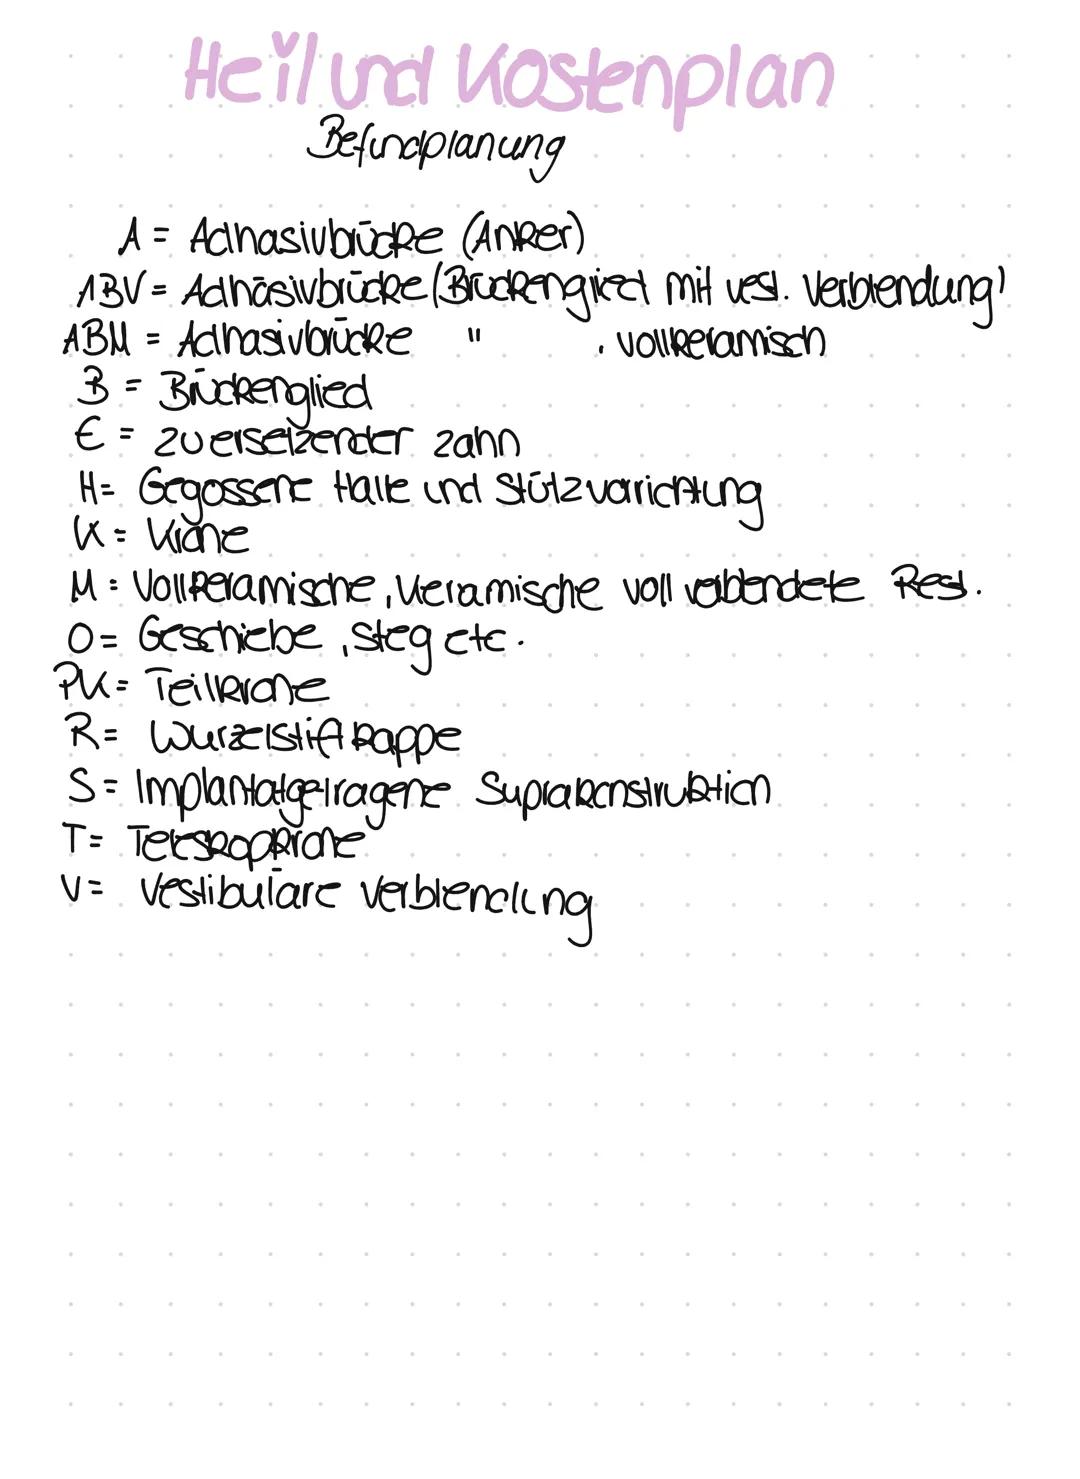 Heil und Kostenplan
Befundplanung
A = Adhäsivbrücke (Anker)
ABV = Adhäsivbrücke (Brückenglied mit vest. Verblendung)
ABM = Adhäsivbrücke " , vollkeramisch
B = Brückenglied
E = zu ersetzender zahn
H = Gegossene Halte und Stützvorrichtung
K = Krone
M = Vollkeramische, Keramische voll verblendete Rest.
O = Geschiebe, Steg etc.
PK = Teilkrone
R = Wurzelstiftkappe
S = Implantatgetragene Suprakonstruktion
T = Teleskopkrone
V = Vestibuläre Verblendung